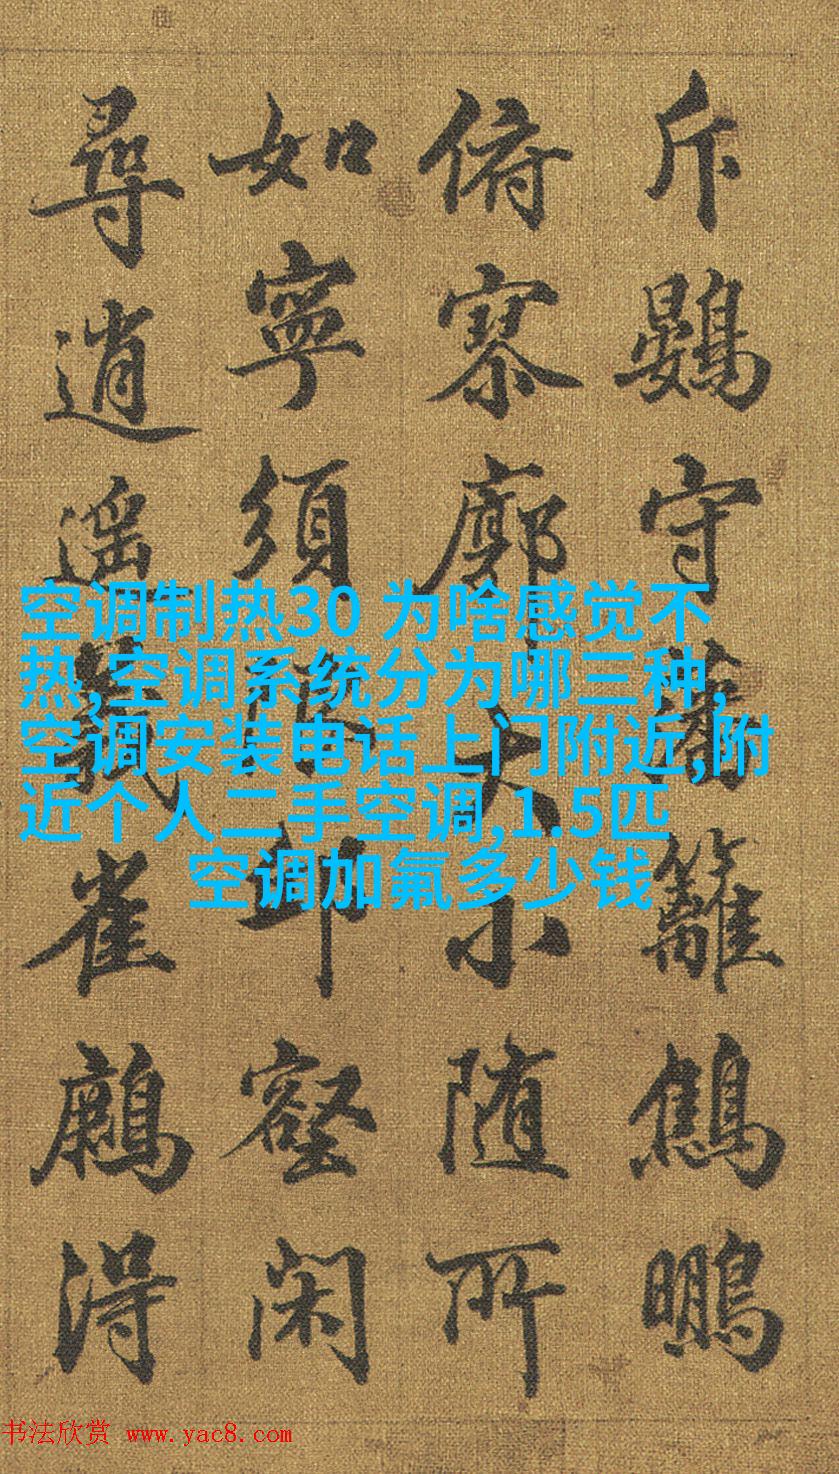 斥鷃守藩籬鷦鵬
俯寥廓大小随所
如寧須邱壑闲
尋逍遥雀得
空调制热30 为啥感觉不
热,空调系统分为哪三种,
空调安装电话上门附近,附
近个人二手空调,1.5匹
空调加氟多少钱
书法欣赏 www.yac8.com